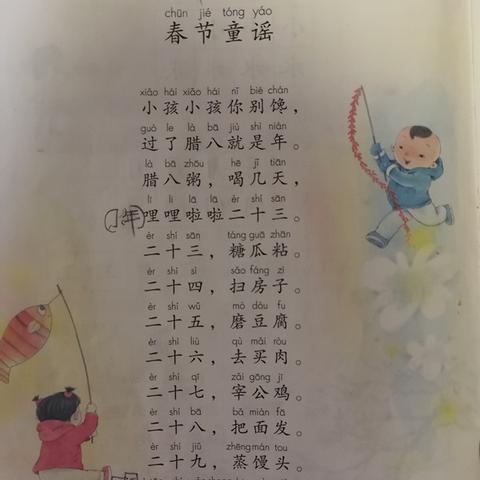 chūn jié tóng yáo
春节童谣
xiǎo hái xiǎo hái nǐ bié chán
小孩小孩你别馋，
guò le là bā jiù shì nián
过了腊八就是年。
là bā zhōu hē jǐ tiān
腊八粥，喝几天，
lī lī lā lā èr shí sān
哩哩啦啦二十三。
èr shí sān táng guā zhān
二十三，糖瓜粘。
èr shí sì sǎo fáng zi
二十四，扫房子。
èr shí wǔ mò dòu fu
二十五，磨豆腐。
èr shí liù qù mǎi ròu
二十六，去买肉。
èr shí qī zǎi gōng jī
二十七，宰公鸡。
èr shí bā bǎ miàn fā
二十八，把面发。
èr shí jiǔ zhēng mán tou
二十九，蒸馒头。